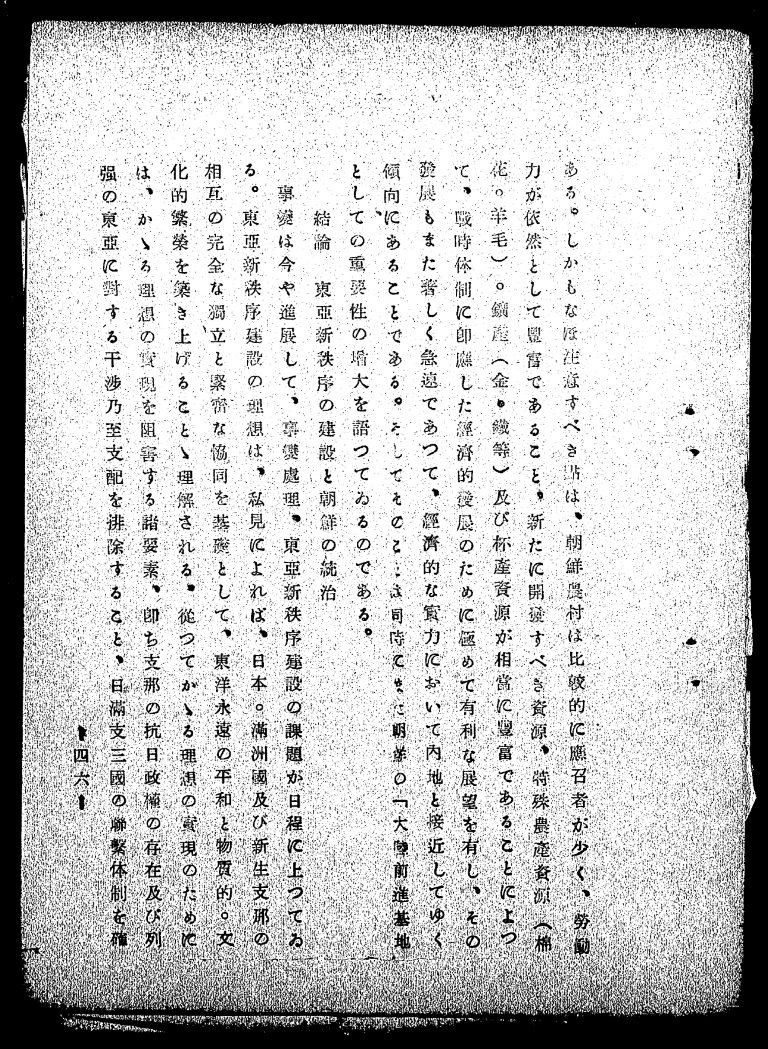 ある。しかもなほ注意すべき點は、朝鮮農村は比較的に應召者が少く、勞働
力が依然として豐富であること、新たに開發すべき資源、特殊農產資源（棉
花。羊毛）。鑛產（金•鐵等）及び林產資源が相當に豐富であることによつ
て、戰時体制に卽應した經濟的發展のために極めて有利な展望を有し、その
發展もまた著しく急速であつて、經濟的な實力において內地と接近してゆく
傾向にあることである。そしてそのことは同時にまた朝鮮の「大陸前進基地
としての重要性の增大を語つてゐるのである。
結論　東亞新秩序の建設と朝鮮の統治
事變は今や進展して、事變處理、東亞新秩序建設の課題が日程に上つてゐ
る。東亞新秩序建設の理想は、私見によれば、日本。滿洲國及び新生支那の
相互の完全な獨立と緊密な協同を基礎として、東洋永遠の平和と物質的。文
化的繁榮を築き上げることゝ理解される。從つてかゝる理想の實現のために
は、かゝる理想の實現を阻害する諸要素、卽ち支那の抗日政權の存在及び列
强の東亞に對する干涉乃至支配を排除すること、日滿支三國の聯繫体制を確
四六